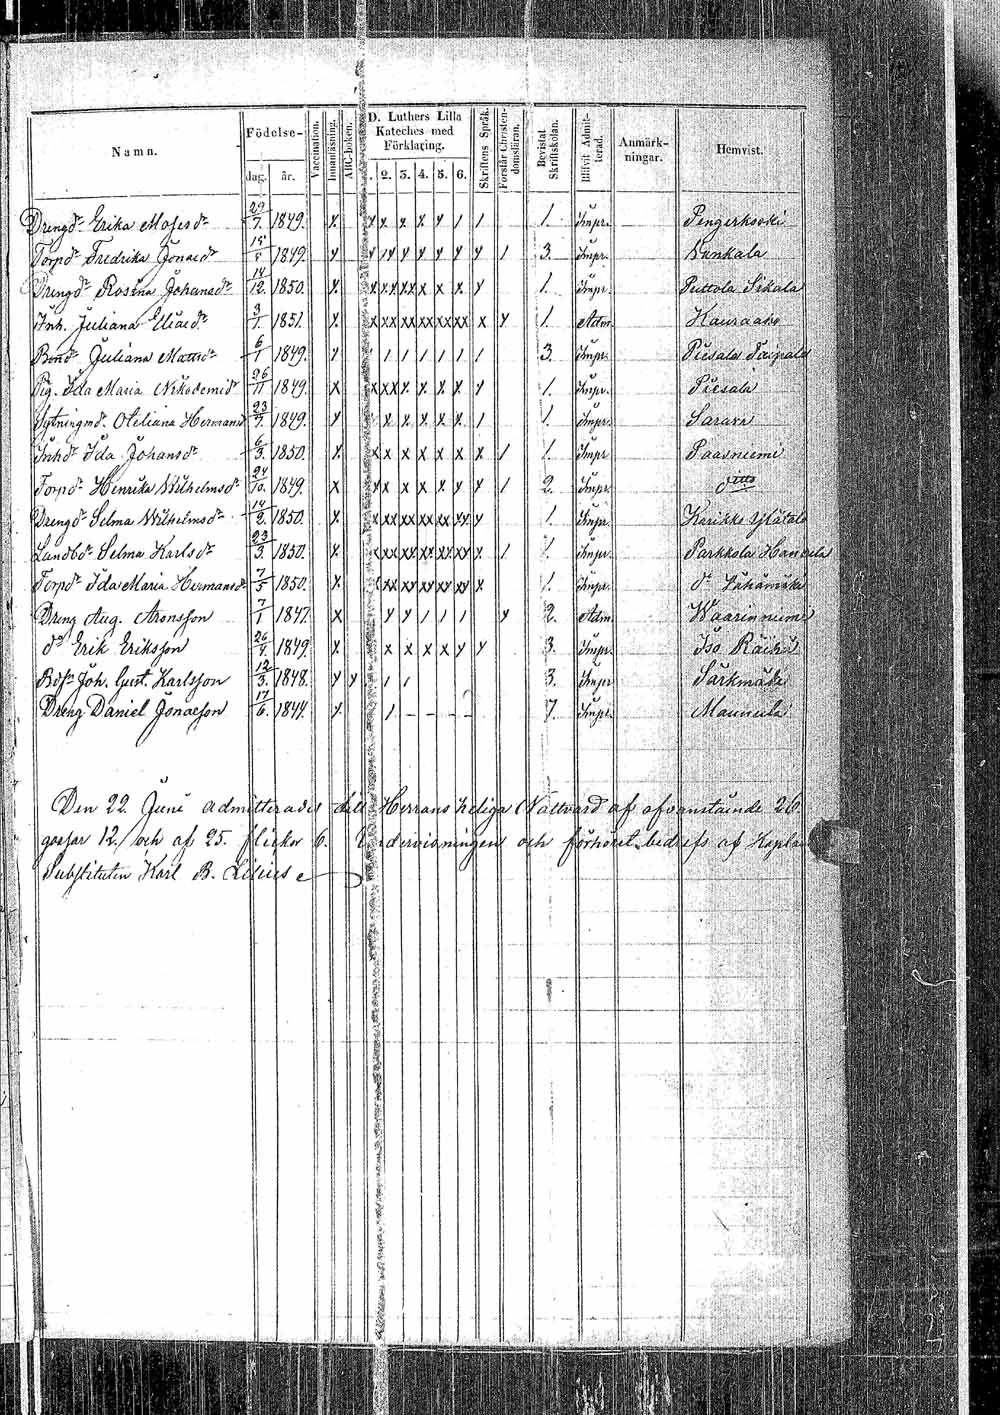 Namn. Födelse- dag. år. Vaccination. Innanläsning. ABC-boken. D. Luthers Lilla Kateches med Förklaring. 2. 3. 4. 5. 6. Skriftens Språk. Förstår Christendomsläran. Bevistat Skriftskolan. Blifvit Admitterad Anmärkningar. Hemvist.
Drengdr Erika Mosesdr 29/7. 1849. x x x. x. x y 1 1 1. Impr. Pengerkoski
Torpdr Fredrika Jonaedr 1849. y y y y y y y 1 3. Impr. Nunkala
Drengdr Rosina Johansdr 14/12. 1850. x. x x xx x x x. y 1. Impr. Puttola Sikala
Inh. Juliana Eliaedr 3/1. 1851. x. x xx xx xx xx x y 1. Adm. Hauraaho
Bonddr Juliana Mattsdr 6/1 1849. y 1 1 1 1 1 1 3. Impr. Piesala Taipale
Pig. Ida Maria Nikodemidr 26/11 1849. x x xx x. x x. x. y 1. Impr. Piesala
Sytningmdr. Otiliana Hermansdr 23/7. 1849. y x x. x. x. x. 1 1. Impr. Saravi
Inhdr Ida Johansdr 6/3. 1850. x. x x x x x x x 1 1. Impr Paasniemi
Torpdr Henrika Wilhelmsdr 24/10. 1849. x x x x x x y y 1 2. Impr. dtto
Drengdr Selma Wilhelmsdr 14/2. 1850. x. x xx xx xx xx y 1. Impr. Karikko Ylätalo
Landbdr Selma Karlsdr 23/3. 1850. x. xx xx xx xx x x 1 1. Impr. Parkkola Hannula
Torpdr Ida Maria Hermansdr 7/5 1850. x xx xx xx xx x 1. Impr. do Lähämäki
Dreng Aug. Aronsson 7/1 1847. x y y 1 1 1 y 2. Adm. Waarinniemi
do Erik Eriksson 26/4. 1849. x x x x x y y 3. Impr. Iso Räihä
Joh. Gust. Karlsson 12/3. 1848. y y 1 1 3. Impr Särkmäki
Dreng Daniel Jonaeson 17/6. 1844. y. 1. – – – – 7. Impr. Maunula
Den 22. Juni admitterades till Herrans heliga Nattvard af ofvanstående 26
gossar 12. och af 25. flickor 6. Undervisningen och förhöret bedrefs af Kaplans
Substituten Karl B. Lilius